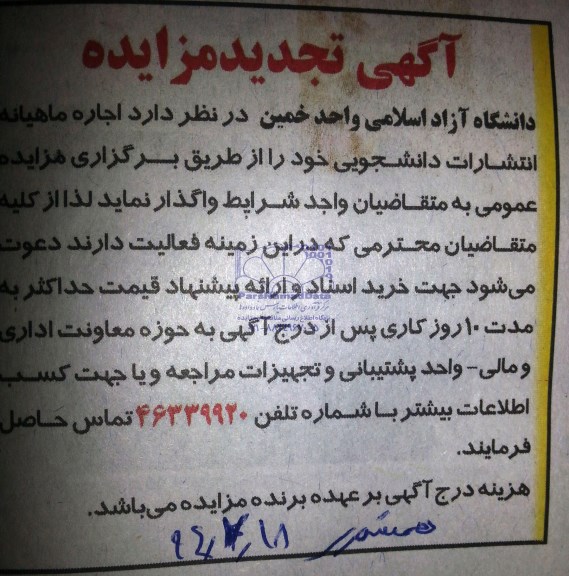 آگهی تجدیدمزایده
دانشگاه آزاد اسلامی واحد خمین در نظر دارد اجاره ماهیانه
انتشارات دانشجویی خود را از طریق برگزاری مزایده
عمومی به متقاضیان واجد شرایط واگذار نماید لذا از کلیه
متقاضیان محترمی که دراین زمینه فعالیت دارند دعوت
می‌شود جهت خرید اسناد و ارائه پیشنهاد قیمت حداکثر به
مدت ۱۰ روز کاری پس از درج آگهی به حوزه معاونت اداری
و مالی- واحد پشتیبانی و تجهیزات مراجعه و یا جهت کسب
اطلاعات بیشتر با شماره تلفن ۴۶۳۳۹۹۲۰ تماس حاصل
فرمایند.
هزینه درج آگهی بر عهده برنده مزایده می‌باشد.
همشهری ۹۴,۷,۱۸
ParsNamadData